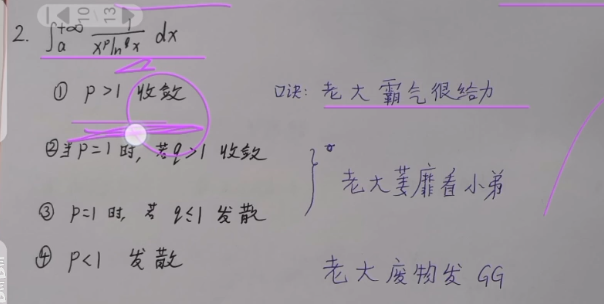 10 13
2. ∫ₐ^{+∞} 1/(x^p ln^q x) dx
① p>1 收敛 口诀: 老大霸气很给力
②当 p=1 时, 若 q>1 收敛
老大萎靡看小弟
③ p=1 时, 若 q≤1 发散
④ p<1 发散
老大废物发 GG